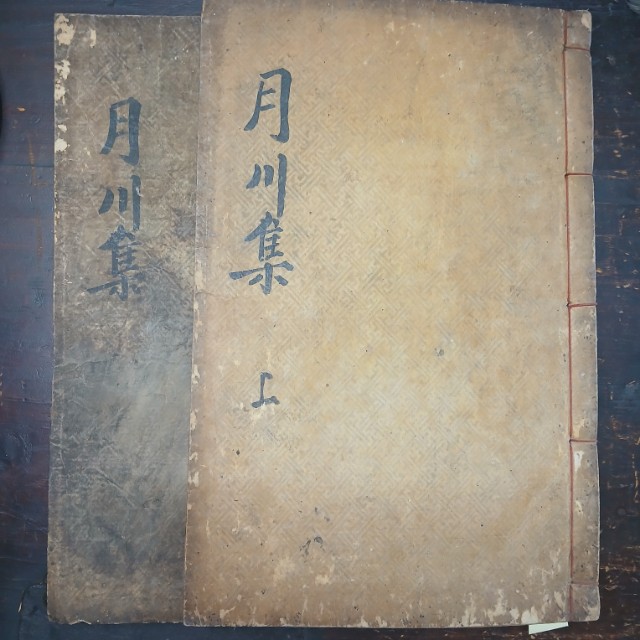 月川集
上
月川集